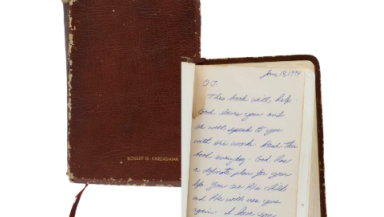 ROBERT G. KARDASHIAN
June 18, 1994
O.J.
This book will help
God loves you and
he will speak to you
with his words. Read this
book everyday. God has
a definite plan for your
life. You are His child
and He will use you
again. I love you